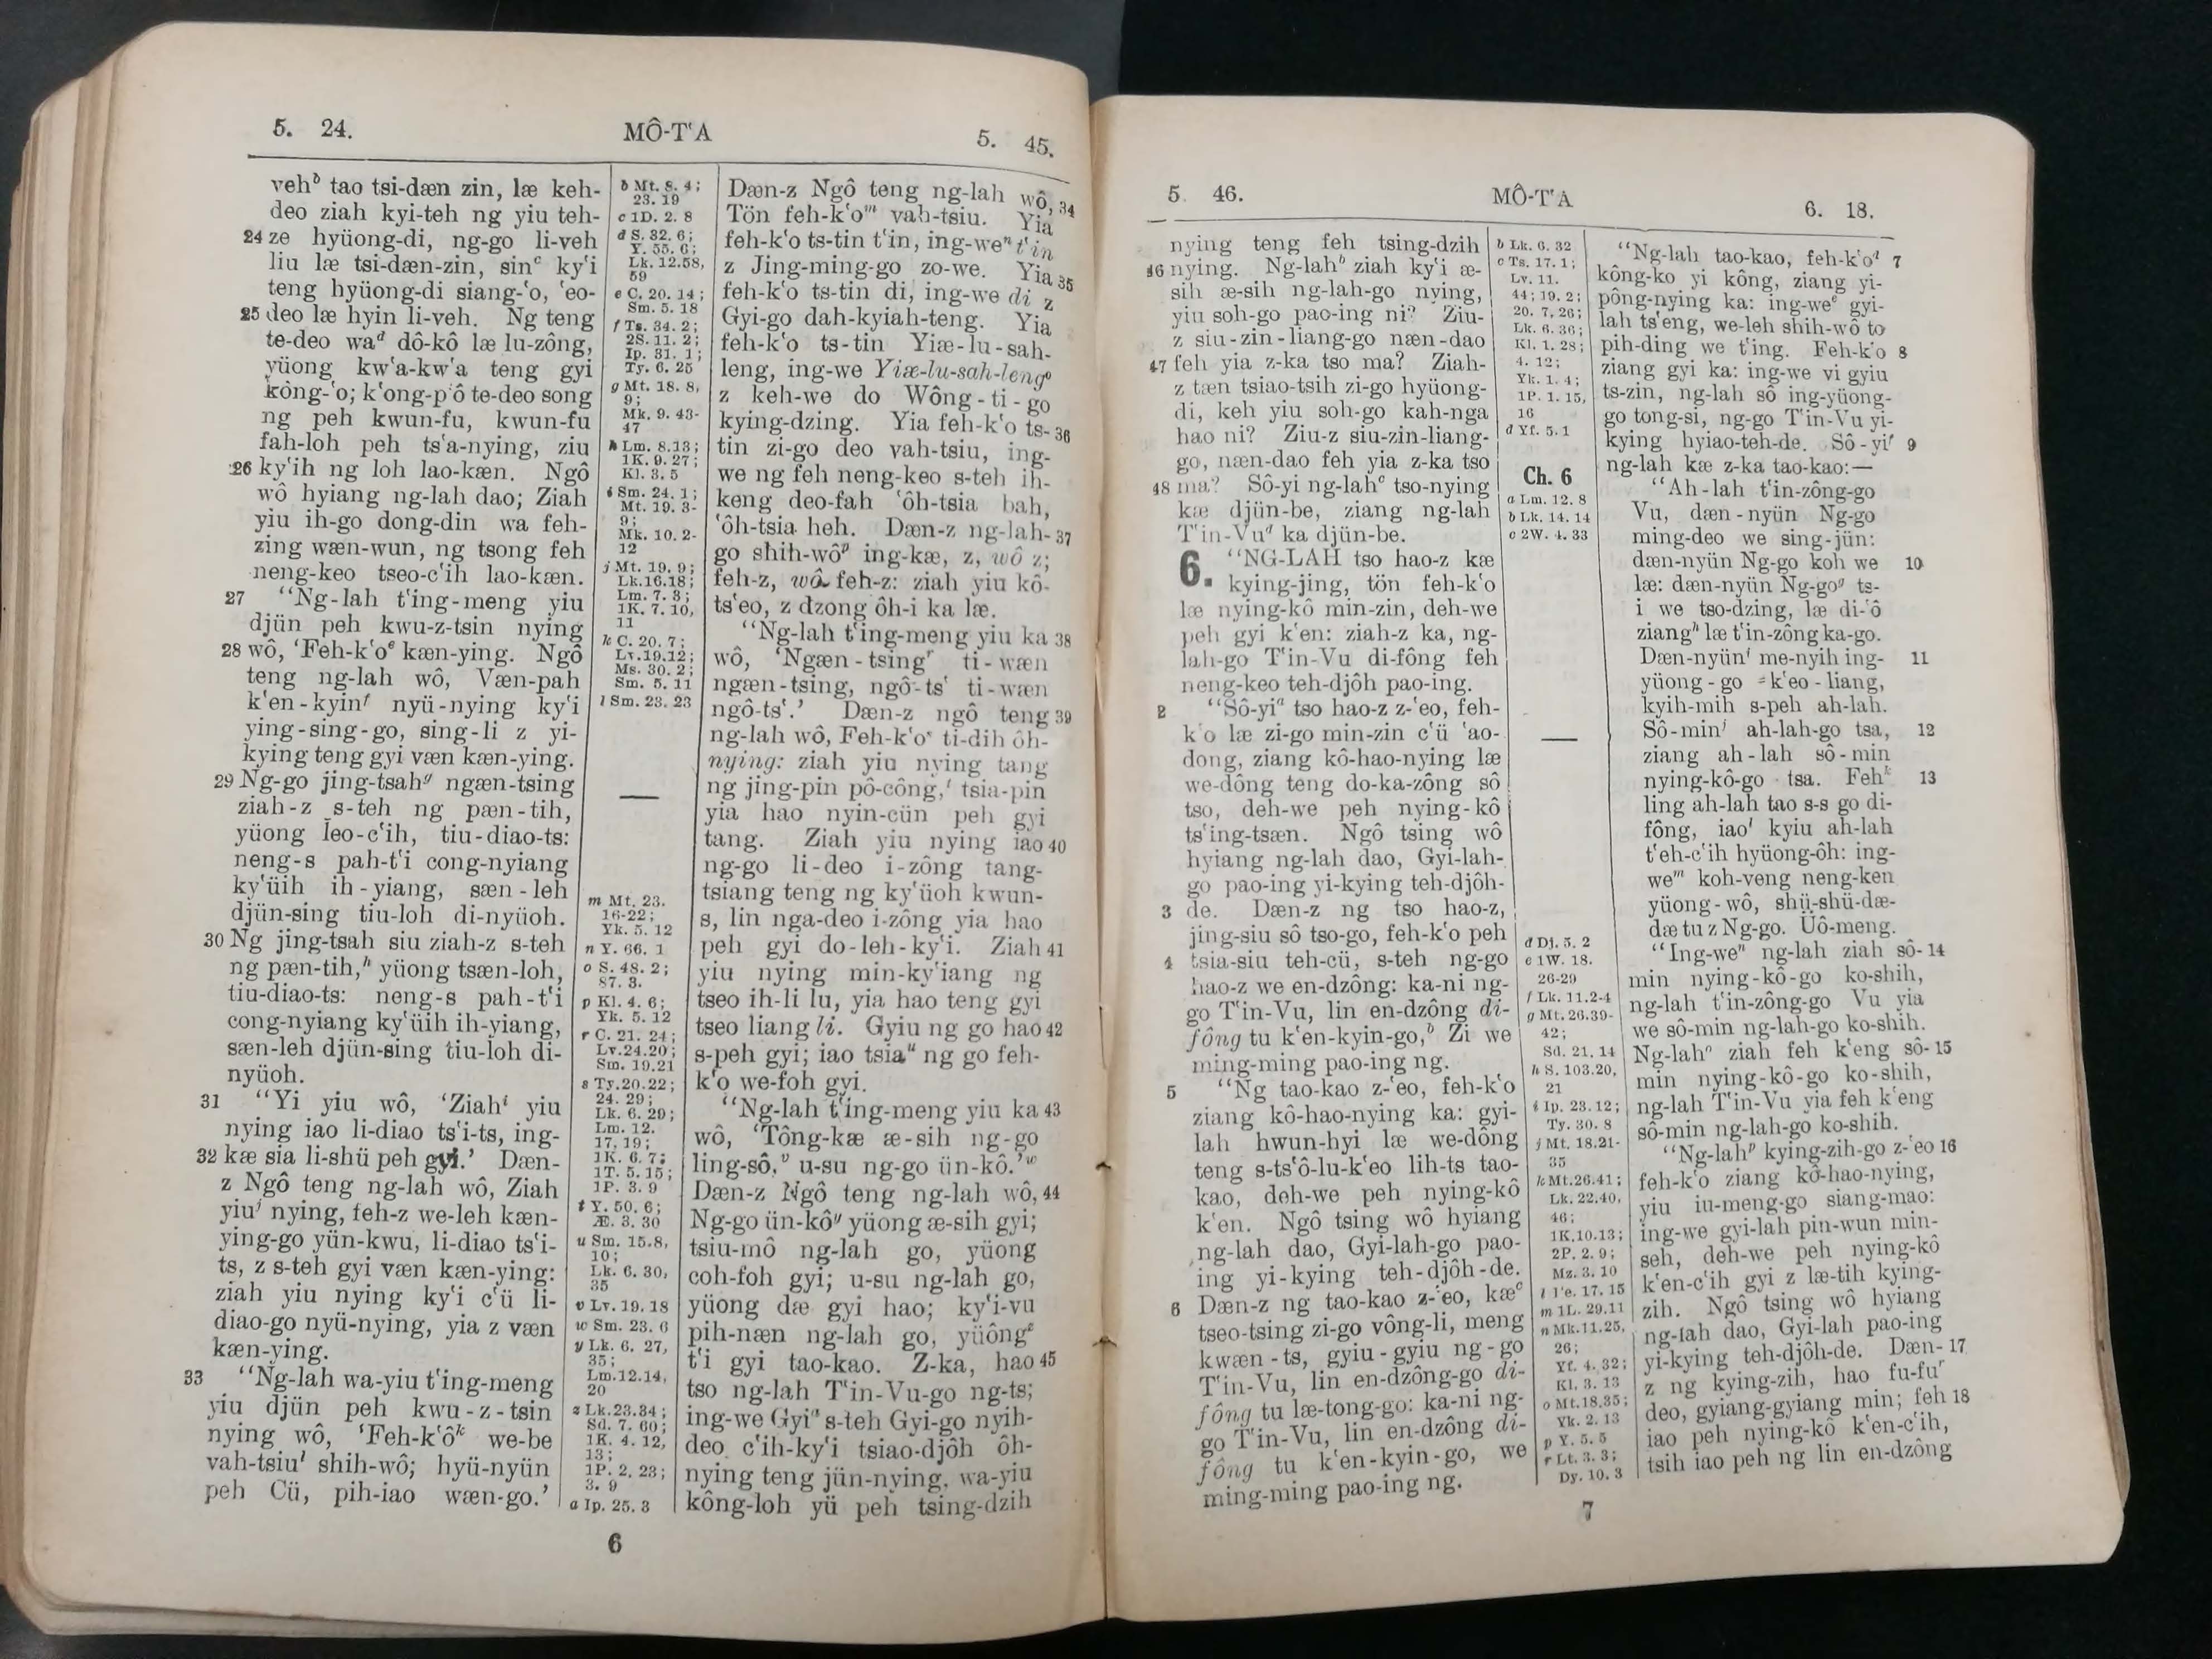 5. 24.
MÔ-TʻA
5. 45.
vehᵇ tao tsi-dæn zin, læ keh-
deo ziah kyi-teh ng yiu teh-
24 ze hyüong-di, ng-go li-veh
liu læ tsi-dæn-zin, sinᶜ kyʻi
teng hyüong-di siang-ʻo, ʻeo-
25 deo læ hyin li-veh. Ng teng
te-deo waᵈ dô-kô læ lu-zông,
yüong kwʻa-kwʻa teng gyi
kông-ʻo; kʻong-pʻô te-deo song
ng peh kwun-fu, kwun-fu
fah-loh peh tsʻa-nying, ziu
26 kyʻih ng loh lao-kæn. Ngô
wô hyiang ng-lah dao; Ziah
yiu ih-go dong-din wa feh-
zing wæn-wun, ng tsong feh
neng-keo tseo-cʻih lao-kæn.
27 “Ng-lah tʻing-meng yiu
djün peh kwu-z-tsin nying
28 wô, ‘Feh-kʻoᵉ kæn-ying. Ngô
teng ng-lah wô, Væn-pah
kʻen-kyinᶠ nyü-nying kyʻi
ying-sing-go, sing-li z yi-
kying teng gyi væn kæn-ying.
29 Ng-go jing-tsahᵍ ngæn-tsing
ziah-z s-teh ng pæn-tih,
yüong leo-cʻih, tiu-diao-ts:
neng-s pah-tʻi cong-nyiang
kyʻüih ih-yiang, sæn-leh
djün-sing tiu-loh di-nyüoh.
30 Ng jing-tsah siu ziah-z s-teh
ng pæn-tih,ʰ yüong tsæn-loh,
tiu-diao-ts: neng-s pah-tʻi
cong-nyiang kyʻüih ih-yiang,
sæn-leh djün-sing tiu-loh di-
nyüoh.
31 “Yi yiu wô, ‘Ziahⁱ yiu
nying iao li-diao tsʻi-ts, ing-
32 kæ sia li-shü peh gyi.’ Dæn-
z Ngô teng ng-lah wô, Ziah
yiuʲ nying, feh-z we-leh kæn-
ying-go yün-kwu, li-diao tsʻi-
ts, z s-teh gyi væn kæn-ying:
ziah yiu nying kyʻi cʻü li-
diao-go nyü-nying, yia z væn
kæn-ying.
33 “Ng-lah wa-yiu tʻing-meng
yiu djün peh kwu-z-tsin
nying wô, ‘Feh-kʻôᵏ we-be
vah-tsiuˡ shih-wô; hyü-nyün
peh Cü, pih-iao wæn-go.’
b Mt. 8. 4;
23. 19
c 1D. 2. 8
d S. 32. 6;
Y. 55. 6;
Lk. 12.58,
59
e C. 20. 14;
Sm. 5. 18
f Ts. 34. 2;
2S. 11. 2;
Ip. 31. 1;
Ty. 6. 25
g Mt. 18. 8,
9;
Mk. 9. 43-
47
h Lm. 8.13;
1K. 9. 27;
Kl. 3. 5
i Sm. 24. 1;
Mt. 19. 3-
9;
Mk. 10. 2-
12
j Mt. 19. 9;
Lk.16.18;
Lm. 7. 3;
1K. 7. 10,
11
k C. 20. 7;
Lv.19.12;
Ms. 30. 2;
Sm. 5. 11
l Sm. 23. 23
m Mt. 23.
16-22;
Yk. 5. 12
n Y. 66. 1
o S. 48. 2;
87. 3.
p Kl. 4. 6;
Yk. 5. 12
r C. 21. 24;
Lv.24.20;
Sm. 19.21
s Ty.20.22;
24. 29;
Lk. 6. 29;
Lm. 12.
17, 19;
1K. 6. 7;
1T. 5. 15;
1P. 3. 9
t Y. 50. 6;
Æ. 3. 30
u Sm. 15.8,
10;
Lk. 6. 30,
35
v Lv. 19. 18
w Sm. 23. 6
y Lk. 6. 27,
35;
Lm.12.14,
20
z Lk.23.34;
Sd. 7. 60;
1K. 4. 12,
13;
1P. 2. 23;
3. 9
a Ip. 25. 3
Dæn-z Ngô teng ng-lah wô, 34
Tön feh-kʻoᵐ vah-tsiu. Yia
feh-kʻo ts-tin tʻin, ing-weⁿ tʻin
z Jing-ming-go zo-we. Yia 35
feh-kʻo ts-tin di, ing-we di z
Gyi-go dah-kyiah-teng. Yia
feh-kʻo ts-tin Yiæ-lu-sah-
leng, ing-we Yiæ-lu-sah-lengᵒ
z keh-we do Wông-ti-go
kying-dzing. Yia feh-kʻo ts- 36
tin zi-go deo vah-tsiu, ing-
we ng feh neng-keo s-teh ih-
keng deo-fah ʻôh-tsia bah,
ʻôh-tsia heh. Dæn-z ng-lah- 37
go shih-wôᵖ ing-kæ, z, wô z;
feh-z, wô feh-z: ziah yiu kô-
tsʻeo, z dzong ôh-i ka læ.
“Ng-lah tʻing-meng yiu ka 38
wô, ‘Ngæn-tsingʳ ti-wæn
ngæn-tsing, ngô-tsʻ ti-wæn
ngô-tsʻ.’ Dæn-z ngô teng 39
ng-lah wô, Feh-kʻoˢ ti-dih ôh-
nying: ziah yiu nying tang
ng jing-pin pô-công,ᵗ tsia-pin
yia hao nyin-cün peh gyi
tang. Ziah yiu nying iao 40
ng-go li-deo i-zông tang-
tsiang teng ng kyʻüoh kwun-
s, lin nga-deo i-zông yia hao
peh gyi do-leh-kyʻi. Ziah 41
yiu nying min-kyʻiang ng
tseo ih-li lu, yia hao teng gyi
tseo liang li. Gyiu ng go hao 42
s-peh gyi; iao tsiaᵘ ng go feh-
kʻo we-foh gyi.
“Ng-lah tʻing-meng yiu ka 43
wô, ‘Tông-kæ æ-sih ng-go
ling-sô,ᵛ u-su ng-go ün-kô.’ʷ
Dæn-z Ngô teng ng-lah wô, 44
Ng-go ün-kôʸ yüong æ-sih gyi;
tsiu-mô ng-lah go, yüong
coh-foh gyi; u-su ng-lah go,
yüong dæ gyi hao; kyʻi-vu
pih-næn ng-lah go, yüôngᶻ
tʻi gyi tao-kao. Z-ka, hao 45
tso ng-lah Tʻin-Vu-go ng-ts;
ing-we Gyiᵃ s-teh Gyi-go nyih-
deo cʻih-kyʻi tsiao-djôh ôh-
nying teng jün-nying, wa-yiu
kông-loh yü peh tsing-dzih
6
5. 46.
MÔ-TʻA
6. 18.
nying teng feh tsing-dzih
46 nying. Ng-lahᵇ ziah kyʻi æ-
sih æ-sih ng-lah-go nying,
yiu soh-go pao-ing ni? Ziu-
z siu-zin-liang-go næn-dao
47 feh yia z-ka tso ma? Ziah-
z tæn tsiao-tsih zi-go hyüong-
di, keh yiu soh-go kah-nga
hao ni? Ziu-z siu-zin-liang-
go, næn-dao feh yia z-ka tso
48 ma? Sô-yi ng-lahᶜ tso-nying
kæ djün-be, ziang ng-lah
Tʻin-Vuᵈ ka djün-be.
6. “NG-LAH tso hao-z kæ
kying-jing, tön feh-kʻo
læ nying-kô min-zin, deh-we
peh gyi kʻen: ziah-z ka, ng-
lah-go Tʻin-Vu di-fông feh
neng-keo teh-djôh pao-ing.
2 “Sô-yiᵃ tso hao-z z-ʻeo, feh-
kʻo læ zi-go min-zin cʻü ʻao-
dong, ziang kô-hao-nying læ
we-dông teng do-ka-zông sô
tso, deh-we peh nying-kô
tsʻing-tsæn. Ngô tsing wô
hyiang ng-lah dao, Gyi-lah-
go pao-ing yi-kying teh-djôh-
3 de. Dæn-z ng tso hao-z,
jing-siu sô tso-go, feh-kʻo peh
4 tsia-siu teh-cü, s-teh ng-go
hao-z we en-dzông: ka-ni ng-
go Tʻin-Vu, lin en-dzông di-
fông tu kʻen-kyin-go,ᵇ Zi we
ming-ming pao-ing ng.
5 “Ng tao-kao z-ʻeo, feh-kʻo
ziang kô-hao-nying ka: gyi-
lah hwun-hyi læ we-dông
teng s-tsʻô-lu-kʻeo lih-ts tao-
kao, deh-we peh nying-kô
kʻen. Ngô tsing wô hyiang
ng-lah dao, Gyi-lah-go pao-
ing yi-kying teh-djôh-de.
6 Dæn-z ng tao-kao z-ʻeo, kæᶜ
tseo-tsing zi-go vông-li, meng
kwæn-ts, gyiu-gyiu ng-go
Tʻin-Vu, lin en-dzông-go di-
fông tu læ-tong-go: ka-ni ng-
go Tʻin-Vu, lin en-dzông di-
fông tu kʻen-kyin-go, we
ming-ming pao-ing ng.
b Lk. 6. 32
c Ts. 17. 1;
Lv. 11.
44; 19. 2;
20. 7, 26;
Lk. 6. 36;
Kl. 1. 28;
4. 12;
Yk. 1. 4;
1P. 1. 15,
16
d Yf. 5. 1
Ch. 6
a Lm. 12. 8
b Lk. 14. 14
c 2W. 4. 33
d Dj. 5. 2
e 1W. 18.
26-29
f Lk. 11.2-4
g Mt. 26.39-
42;
Sd. 21. 14
h S. 103.20,
21
i Ip. 23. 12;
Ty. 30. 8
j Mt. 18.21-
35
k Mt.26.41;
Lk. 22.40,
46;
1K.10.13;
2P. 2. 9;
Mz. 3. 10
l 17. 15
m 1L. 29.11
n Mk.11.25,
26;
Yf. 4. 32;
Kl. 3. 13
o Mt.18.35;
Yk. 2. 13
p Y. 5. 5
r Lt. 3. 3;
Dy. 10. 3
“Ng-lah tao-kao, feh-kʻoᵈ 7
kông-ko yi kông, ziang yi-
pông-nying ka: ing-weᵉ gyi-
lah tsʻeng, we-leh shih-wô to
pih-ding we tʻing. Feh-kʻo 8
ziang gyi ka: ing-we vi gyiu
ts-zin, ng-lah sô ing-yüong-
go tong-si, ng-go Tʻin-Vu yi-
kying hyiao-teh-de. Sô-yiᶠ 9
ng-lah kæ z-ka tao-kao:—
“Ah-lah tʻin-zông-go
Vu, dæn-nyün Ng-go
ming-deo we sing-jün:
dæn-nyün Ng-go koh we 10
læ: dæn-nyün Ng-goᵍ ts-
i we tso-dzing, læ di-ʻô
ziangʰ læ tʻin-zông ka-go.
Dæn-nyünⁱ me-nyih ing- 11
yüong-go kʻeo-liang,
kyih-mih s-peh ah-lah.
Sô-minʲ ah-lah-go tsa, 12
ziang ah-lah sô-min
nying-kô-go tsa. Fehᵏ 13
ling ah-lah tao s-s go di-
fông, iaoˡ kyiu ah-lah
tʻeh-cʻih hyüong-ôh: ing-
weᵐ koh-veng neng-ken
yüong-wô, shü-shü-dæ-
dæ tu z Ng-go. Üô-meng.
“Ing-weⁿ ng-lah ziah sô- 14
min nying-kô-go ko-shih,
ng-lah tʻin-zông-go Vu yia
we sô-min ng-lah-go ko-shih.
Ng-lahᵒ ziah feh kʻeng sô- 15
min nying-kô-go ko-shih,
ng-lah Tʻin-Vu yia feh kʻeng
sô-min ng-lah-go ko-shih.
“Ng-lahᵖ kying-zih-go z-ʻeo 16
feh-kʻo ziang kô-hao-nying,
yiu iu-meng-go siang-mao:
ing-we gyi-lah pin-wun min-
seh, deh-we peh nying-kô
kʻen-cʻih gyi z læ-tih kying-
zih. Ngô tsing wô hyiang
ng-lah dao, Gyi-lah pao-ing
yi-kying teh-djôh-de. Dæn- 17
z ng kying-zih, hao fu-fuʳ
deo, gyiang-gyiang min; feh 18
iao peh nying-kô kʻen-cʻih,
tsih iao peh ng lin en-dzông
7